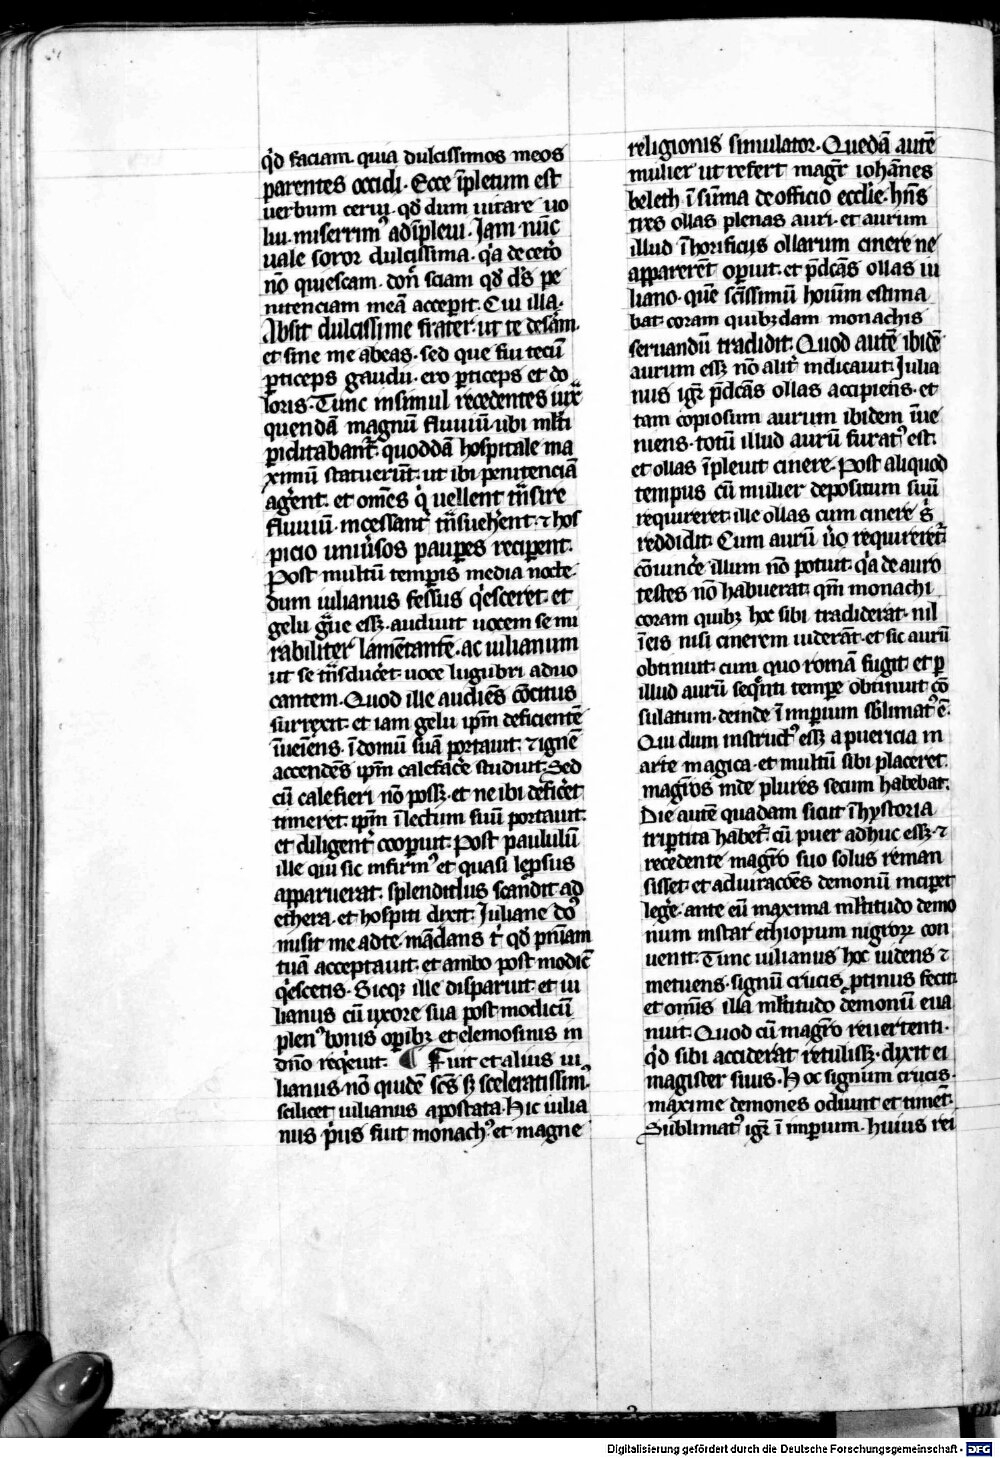 qd̄ faciam quia dulcissimos meos
parentes occidi. Ecce īpletum est
uerbum cerui. qd̄ dum uitare uo
lui. miserrimꝰ adīpleui. Jam nūc
uale soror dulcissima. qꝛ̄a de ceto̅
nō quiescam. don̄ sciam qd̄ d̄s pe
nitenciam meā accepit. Cui illa.
Absit dulcissime frater. ut te deserā.
et sine me abeas. sed que fui tecū
ꝑticeps gaudii. ero ꝑticeps et do
loris. Tunc insimul recedentes iux
quendam magnū fluuiū. ubi ml̄ti
ꝑiclitabant̄. quoddā hospitale ma
ximū statuerūt. ut ibi penitenciā
aḡrent. et om̄es q̄ uellent tn̄sire
fluuiū. incessant̄ tn̄sueh̄ent. ⁊ hos
picio uniūsos pauꝑes reciꝑent.
Post multū temporis media nocte.
dum iulianus fessus q̄esceret. et
gelu gͣue eēꝫ. audiuit uocem se mi
rabiliter lamētante̅. ac iulianum
ut se tn̄sducēt. uoce lugubri aduo
cantem. Quod ille audiēs cōcitus
surrexit. et iam gelu ip̄m deficientē
īueiēns. ī domū suā portauit. ⁊ ignē
accendēs ip̄m calefacēre studuit. Sed
cū calefieri nō possꝫ. et ne ibi deficēt
timeret. ip̄m ī lectum suū portauit.
et diligent̄ cooꝑuit. Post paululū
ille qui sic infirmꝰ et quasi lepsus
apparuerat. splendidus scandit ad
ethera. et hospiti dixit. Juliane do̅ꝰ
misit me ad te. mādans t̄ qd̄ pn̄iam
tuā acceptauit. et ambo post modicū
q̄escetis. Sicqꝫ ille disparuit et iu
lianus cū uxore sua post modicū
plenꝰ bonis oꝑibꝫ et elemosinis in
dn̄o reqeuit. ¶ Fuit et alius iu
lianus. nō quidē sc̄s sꝫ sceleratissimꝰ.
scilicet iulianus apostata. Hic iulia
nus p̄us fuit monachꝰ. et magne
religionis simulator. Quedā autē
mulier ut refert magr̄ iohānes
beleth ī sūma de officio eccl̄ie. hn̄s
tres ollas plenas auri. et aurum
illud ī horificiis ollarum cinere ne
appareret oꝑuit. et p̄dcās ollas iu
liano. quē sc̄issimū hoiūm estima
bat. coram quibꝫdam monachis
seruandū tradidit. Quod autē ibidē
aurum eēꝫ nō alit̄ indicauit. Julia
nus igr̄ p̄dcās ollas accipiens. et
tam copiosum aurum ibidem īue
niens. totū illud aurū furatꝰ est.
et ollas īpleuit cinere. Post aliquod
tempus cū mulier depositum suū
requireret. ille ollas cum cinere s̄
reddidit. Cum aurū ūo requireret̄
cōuincēre illum nō potuit. qꝛ̄a de auro
testes nō habuerat. qm̄ monachi
coram quibꝫ hoc sibi tradiderat. nil
ī eis nisi cinerem uiderāt. et sic aurū
obtinuit. cum quo romā fugit. et ꝑ
illud aurū seq̄nti tempe obtinuit cō
sulatum. deinde ī imꝑium sb̄limatꝰ ē.
Qui dum instructꝰ eēꝫ a puericia in
arte magica. et multū sibi placeret.
magr̄os inde plures secum habebat.
Die autē quadam sicut ī hystoria
triꝑtita habet̄. cū puer adhuc eēꝫ. ⁊
recedente magr̄o suo solus reman
sisset. et adiuracōes demonū inciꝑet
leḡe. ante eū maxima ml̄titudo demo
num instar ethiopum nigroꝝ con
uenit. Tunc iulianus hoc uidens ⁊
metuens. signū crucis ꝓtinus fecit.
et om̄is illa ml̄titudo demonū eua
nuit. Quod cū magr̄o reuertenti.
qd̄ sibi acciderat retulissꝫ. dixit ei
magister suus. Hoc signum crucis.
maxime demones odiunt et timēt.
Sublimatꝰ igr̄ ī imꝑium. huius rei
Digitalisierung gefördert durch die Deutsche Forschungsgemeinschaft - DFG